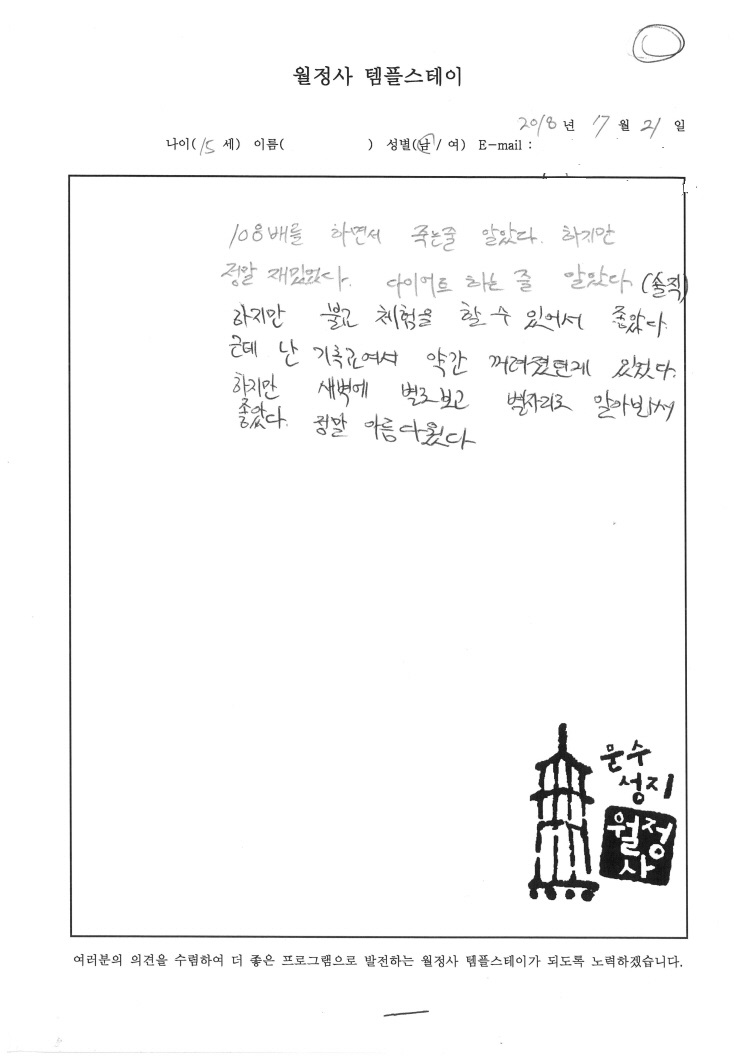 월정사 템플스테이
2018 년 7 월 21 일
나이( 15 세) 이름( ) 성별(남 / 여) E-mail :
108배를 하면서 죽는줄 알았다. 하지만
정말 재밌었다. 다이어트 하는 줄 알았다. (솔직)
하지만 불교 체험을 할 수 있어서 좋았다.
근데 난 기독교여서 약간 꺼려졌던게 있었다.
하지만 새벽에 별도 보고 별자리도 알아봐서
좋았다. 정말 아름다웠다
문수
성지
월정
사
여러분의 의견을 수렴하여 더 좋은 프로그램으로 발전하는 월정사 템플스테이가 되도록 노력하겠습니다.